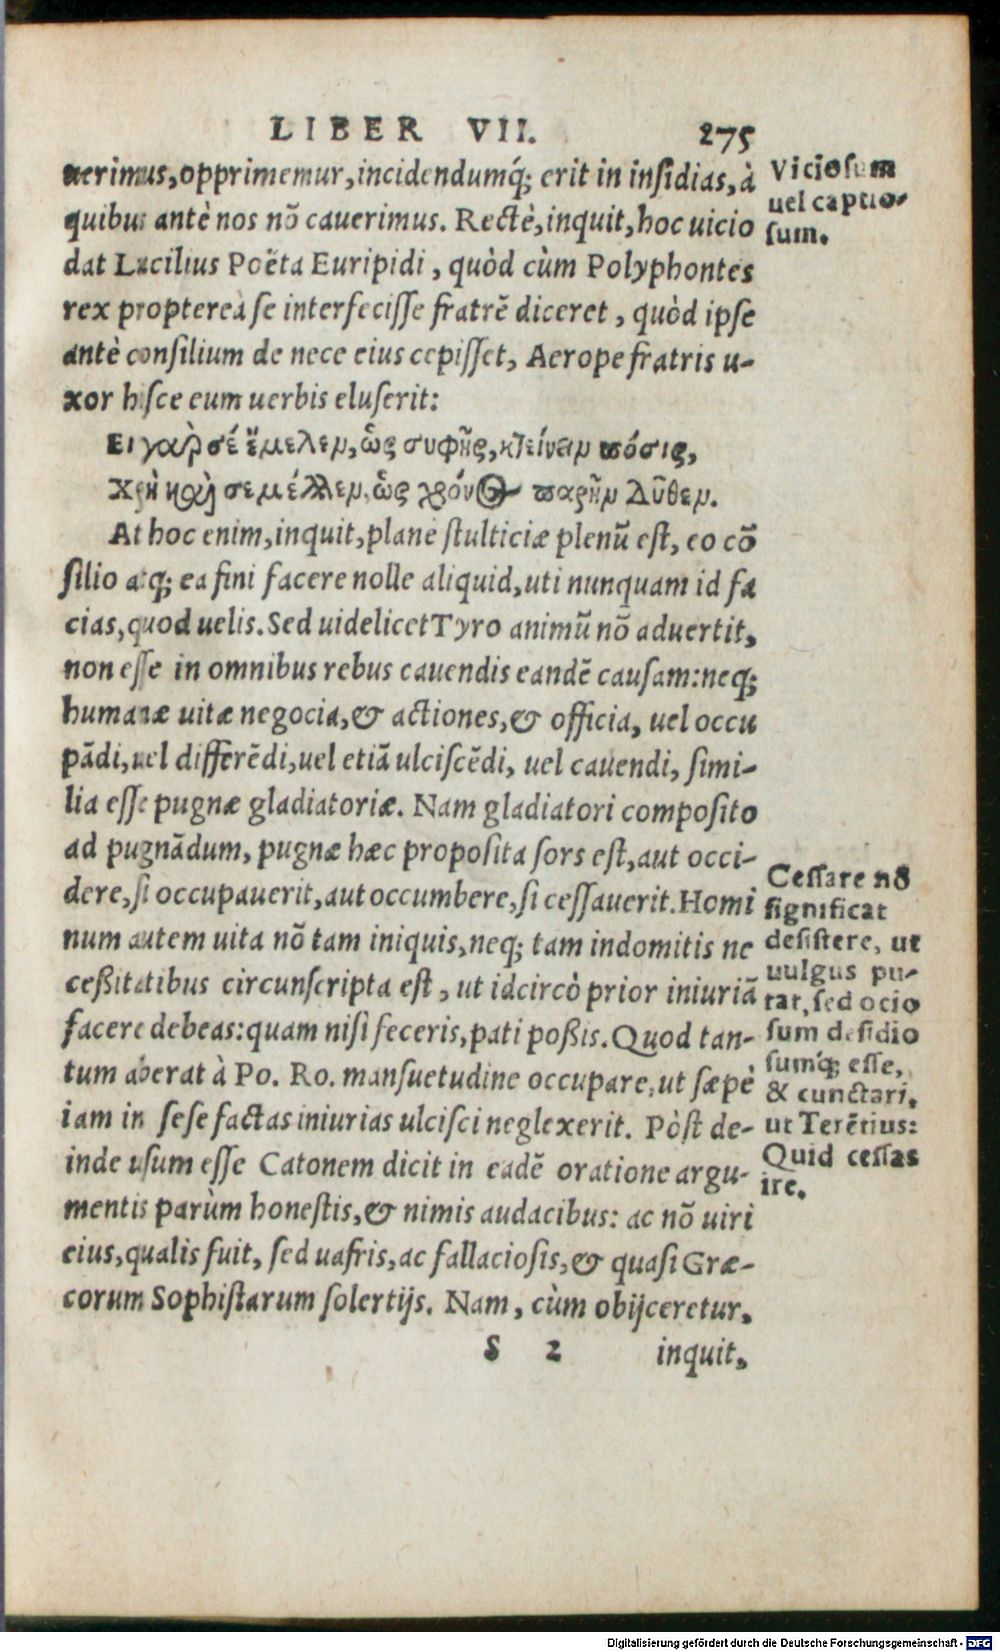 LIBER VII. 275
uerimus, opprimemur, incidendumq́; erit in insidias, à
quibus antè nos nō cauerimus. Rectè, inquit, hoc uicio
dat Lucilius Poëta Euripidi, quòd cùm Polyphontes
rex propterea se interfecisse fratrē diceret, quòd ipse
antè consilium de nece eius cepisset, Aerope fratris u-
xor hisce eum uerbis eluserit:
Ει γαρ σέ ἔμελεν, ὥς συφῂς, κτείνειν πόσις,
Χρὴ καὶ σε μέλλειν, ὡς χρόνος παρῆν
At hoc enim, inquit, plane stulticiæ plenū est, eo cō
silio atq; ea fini facere nolle aliquid, uti nunquam id fa
cias, quod uelis. Sed uidelicet Tyro animū nō aduertit,
non esse in omnibus rebus cauendis eandē causam: neq;
humanæ uitæ negocia, & actiones, & officia, uel occu
pādi, uel differēdi, uel etiā ulciscēdi, uel cauendi, simi-
lia esse pugnæ gladiatoriæ. Nam gladiatori composito
ad pugnādum, pugnæ hæc proposita sors est, aut occi-
dere, si occupauerit, aut occumbere, si cessauerit. Homi
num autem uita nō tam iniquis, neq; tam indomitis ne
ceßitatibus circunscripta est, ut idcircò prior iniuriā
facere debeas: quam nisi feceris, pati poßis. Quod tan-
tum aberat à Po. Ro. mansuetudine occupare, ut sæpè
iam in sese factas iniurias ulcisci neglexerit. Pòst de-
inde usum esse Catonem dicit in eadē oratione argu-
mentis parùm honestis, & nimis audacibus: ac nō uiri
eius, qualis fuit, sed uafris, ac fallaciosis, & quasi Græ-
corum Sophistarum solertijs. Nam, cùm obijceretur,
S 2 inquit,
Viciosum
uel captio-
sum.
Cessare nō
significat
desistere, ut
uulgus pu-
tat, sed ocio
sum desidio
sumq́; esse,
& cunctari,
ut Terētius:
Quid cessas
ire.
Digitalisierung gefördert durch die Deutsche Forschungsgemeinschaft - DFG